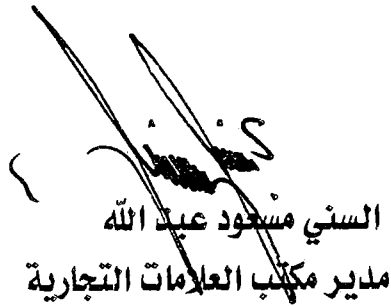 السني مسعود عبد الله
مدير مكتب العلامات التجارية